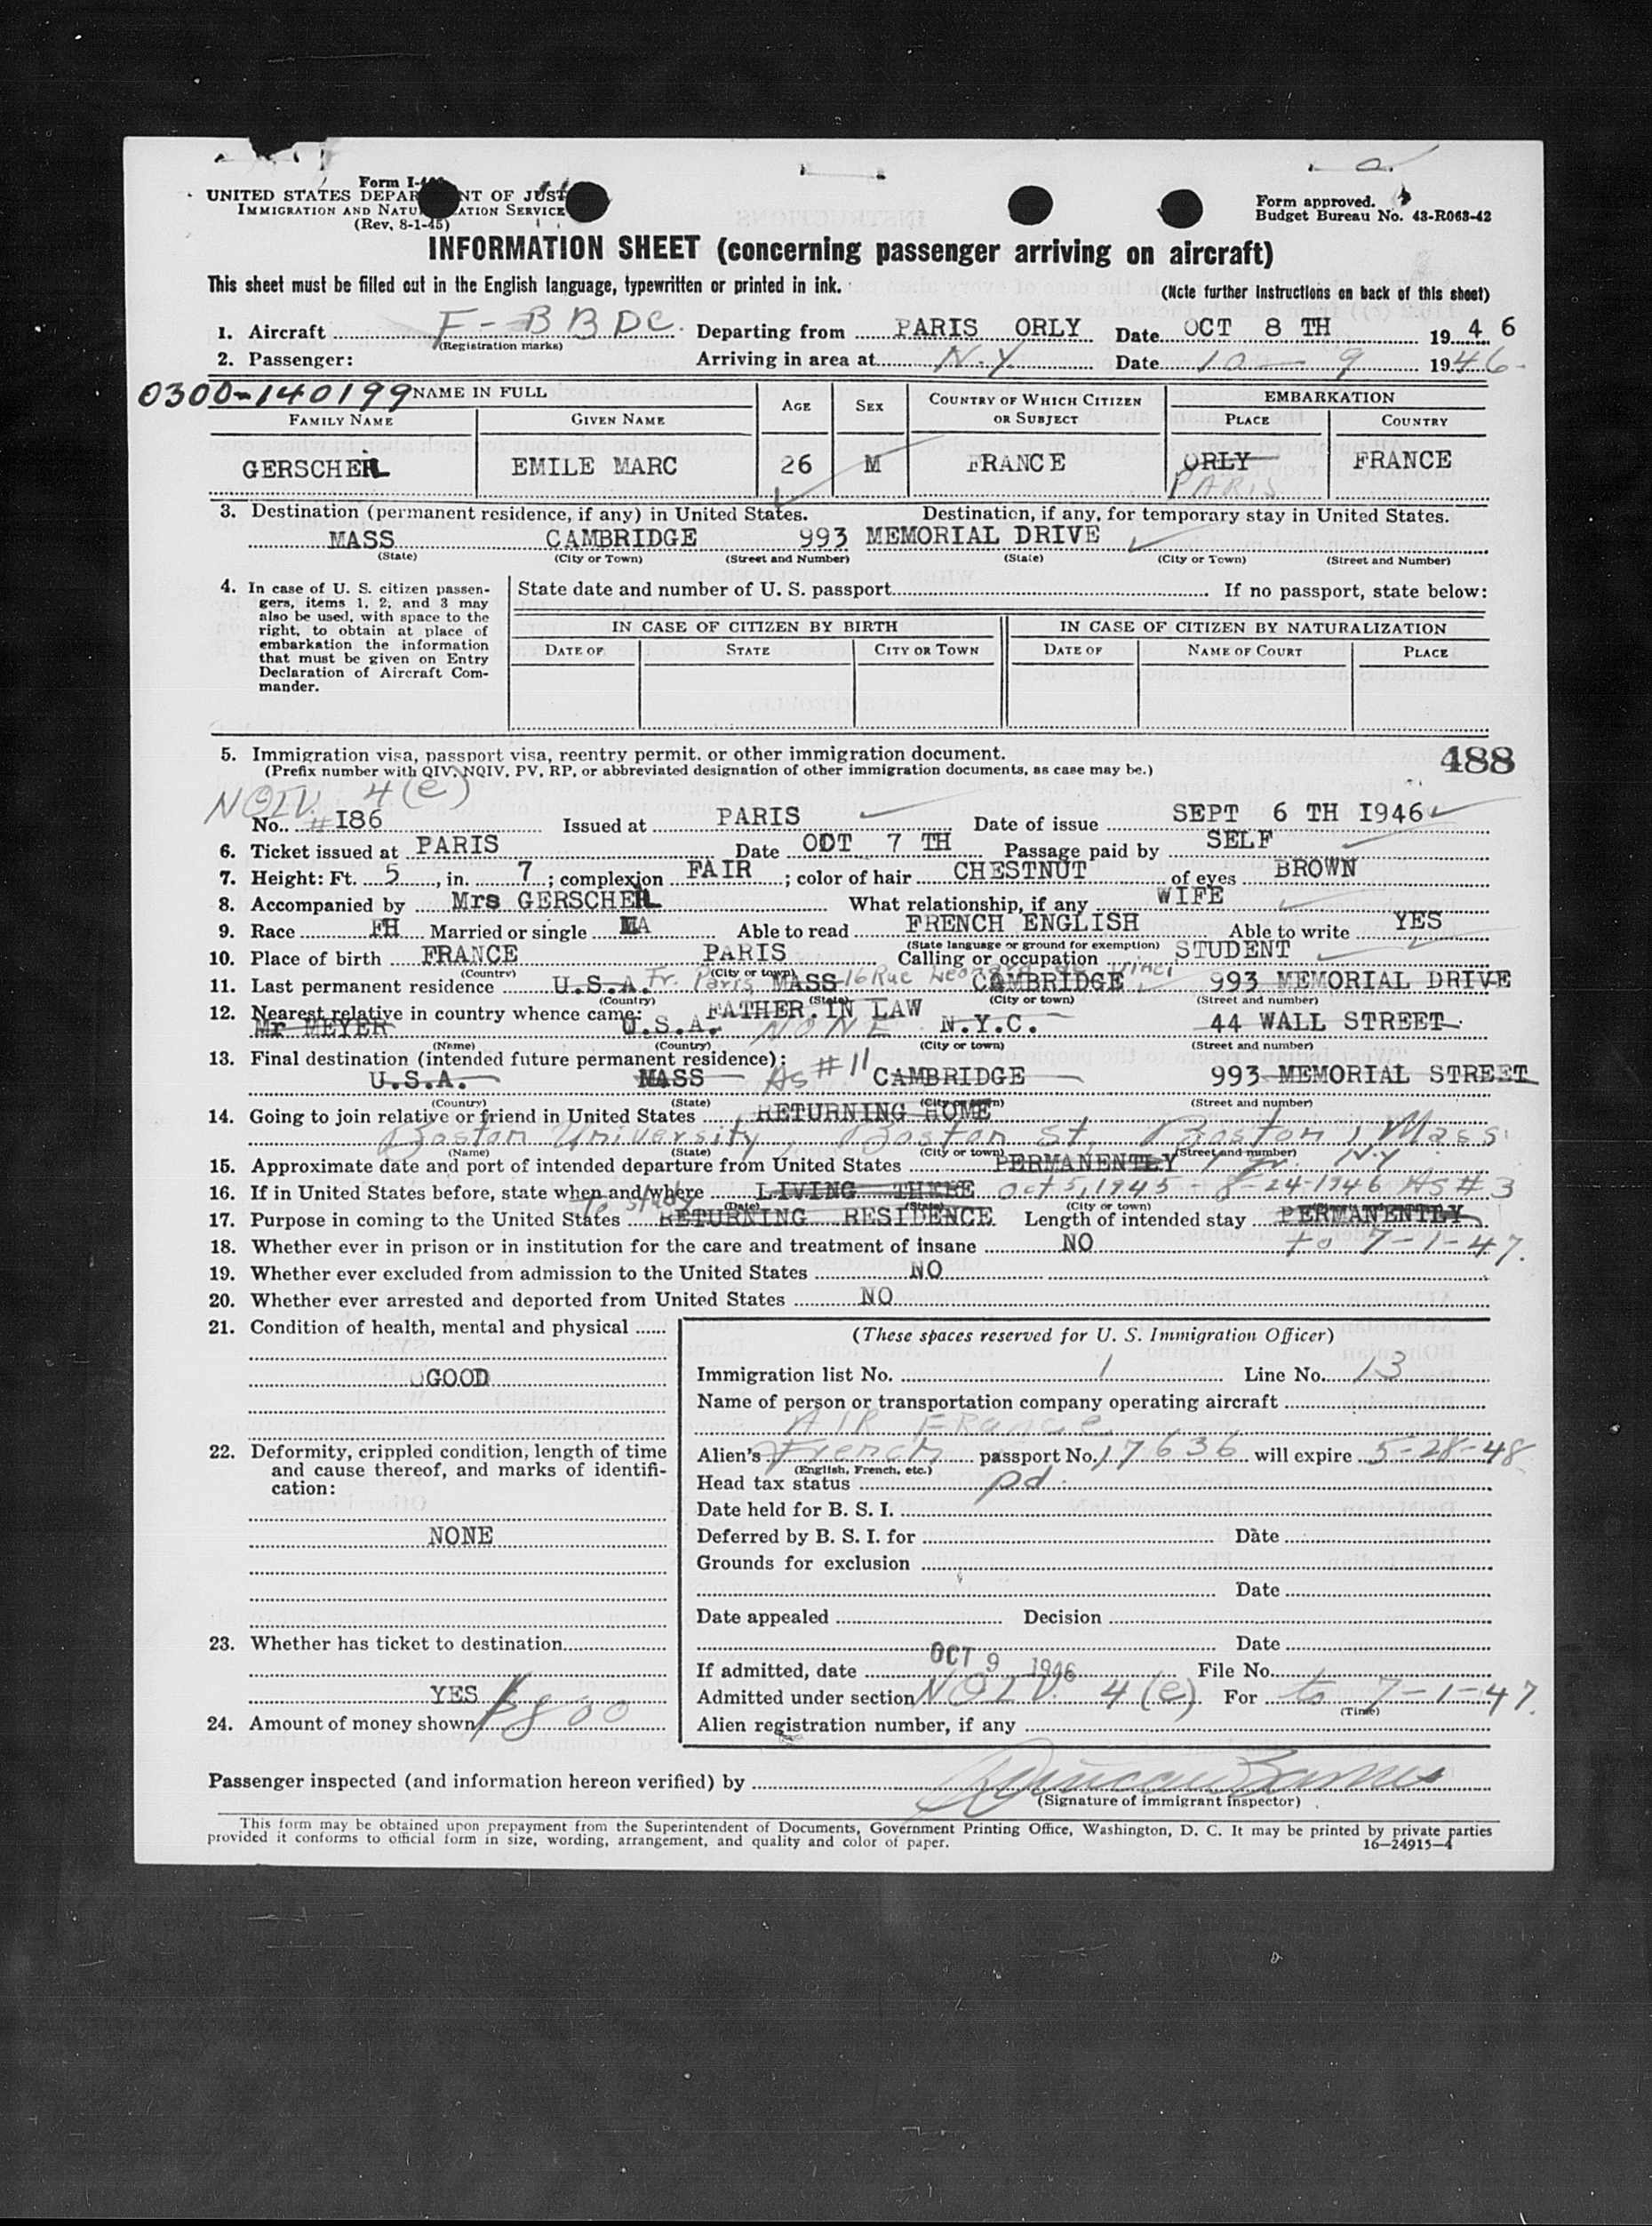 Form I-
UNITED STATES DEPAR NT OF JUST
IMMIGRATION AND NATU ATION SERVICE
(Rev. 8-1-45)
Form approved.
Budget Bureau No. 43-R063-42
INFORMATION SHEET (concerning passenger arriving on aircraft)
This sheet must be filled out in the English language, typewritten or printed in ink.
(Note further instructions on back of this sheet)
1. Aircraft F-BBDC. Departing from PARIS ORLY Date OCT 8 TH 1946
(Registration marks)
2. Passenger: Arriving in area at N.Y. Date 10-9 1946-
0300-140199 NAME IN FULL AGE SEX COUNTRY OF WHICH CITIZEN OR SUBJECT EMBARKATION
FAMILY NAME GIVEN NAME PLACE COUNTRY
GERSCHEL EMILE MARC 26 M FRANCE ORLY FRANCE
PARIS
3. Destination (permanent residence, if any) in United States. Destination, if any, for temporary stay in United States.
MASS CAMBRIDGE 993 MEMORIAL DRIVE
(State) (City or Town) (Street and Number) (State) (City or Town) (Street and Number)
4. In case of U. S. citizen passen-
gers, items 1, 2, and 3 may
also be used, with space to the
right, to obtain at place of
embarkation the information
that must be given on Entry
Declaration of Aircraft Com-
mander.
State date and number of U. S. passport If no passport, state below:
IN CASE OF CITIZEN BY BIRTH IN CASE OF CITIZEN BY NATURALIZATION
DATE OF STATE CITY OR TOWN DATE OF NAME OF COURT PLACE
5. Immigration visa, passport visa, reentry permit, or other immigration document. 488
(Prefix number with QIV, NQIV, PV, RP, or abbreviated designation of other immigration documents, as case may be.)
NQIV. 4(e)
No. #I86 Issued at PARIS Date of issue SEPT 6 TH I946
6. Ticket issued at PARIS Date OCT 7 TH Passage paid by SELF
7. Height: Ft. 5, in. 7; complexion FAIR; color of hair CHESTNUT of eyes BROWN
8. Accompanied by Mrs GERSCHEL What relationship, if any WIFE
9. Race FH Married or single MA Able to read FRENCH ENGLISH Able to write YES
(State language or ground for exemption)
10. Place of birth FRANCE PARIS Calling or occupation STUDENT
(Country) (City or town)
11. Last permanent residence U.S.A. Fr. Paris MASS 16 Rue Leonard de Vinci CAMBRIDGE 993 MEMORIAL DRIVE
(Country) (State) (City or town) (Street and number)
12. Nearest relative in country whence came: FATHER IN LAW
Mr MEYER U.S.A. NONE N.Y.C. 44 WALL STREET
(Name) (Country) (City or town) (Street and number)
13. Final destination (intended future permanent residence):
U.S.A. MASS As #11 CAMBRIDGE 993 MEMORIAL STREET
(Country) (State) (City or town) (Street and number)
14. Going to join relative or friend in United States RETURNING HOME
Boston University, Boston St, Boston, Mass
(Name) (State) (City or town) (Street and number)
15. Approximate date and port of intended departure from United States PERMANENTLY 1 yr. N.Y
16. If in United States before, state when and where LIVING THERE Oct 5, 1945 - 8-24-1946 As #3
(Date) (State) (City or town)
To study
17. Purpose in coming to the United States RETURNING RESIDENCE Length of intended stay PERMANENTLY
18. Whether ever in prison or in institution for the care and treatment of insane NO to 7-1-47.
19. Whether ever excluded from admission to the United States NO
20. Whether ever arrested and deported from United States NO
21. Condition of health, mental and physical
GOOD
22. Deformity, crippled condition, length of time
and cause thereof, and marks of identifi-
cation:
NONE
23. Whether has ticket to destination
YES
24. Amount of money shown $800
(These spaces reserved for U. S. Immigration Officer)
Immigration list No. 1 Line No. 13
Name of person or transportation company operating aircraft
AIR FRANCE
Alien's French passport No. 17636 will expire 5-28-48
(English, French, etc.)
Head tax status pd.
Date held for B. S. I.
Deferred by B. S. I. for Date
Grounds for exclusion
Date
Date appealed Decision
Date
If admitted, date OCT 9 1946 File No.
Admitted under section NQIV. 4(e) For to 7-1-47.
(Time)
Alien registration number, if any
Passenger inspected (and information hereon verified) by
(Signature of immigrant inspector)
This form may be obtained upon prepayment from the Superintendent of Documents, Government Printing Office, Washington, D. C. It may be printed by private parties
provided it conforms to official form in size, wording, arrangement, and quality and color of paper. 16—24915-4